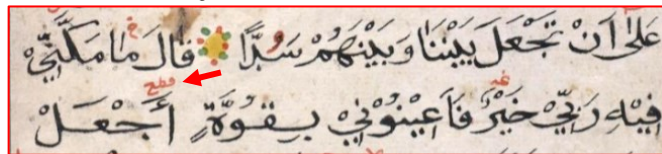 عَلٰى اَنْ تَجْعَلَ بَيْنَنَا وَبَيْنَهُمْ سُدًّا قَالَ مَا مَكَّنِّيْ
قطع غنه
فِيْهِ رَبِّيْ خَيْرٌ فَاَعِيْنُوْنِيْ بِقُوَّةٍ اَجْعَلْ